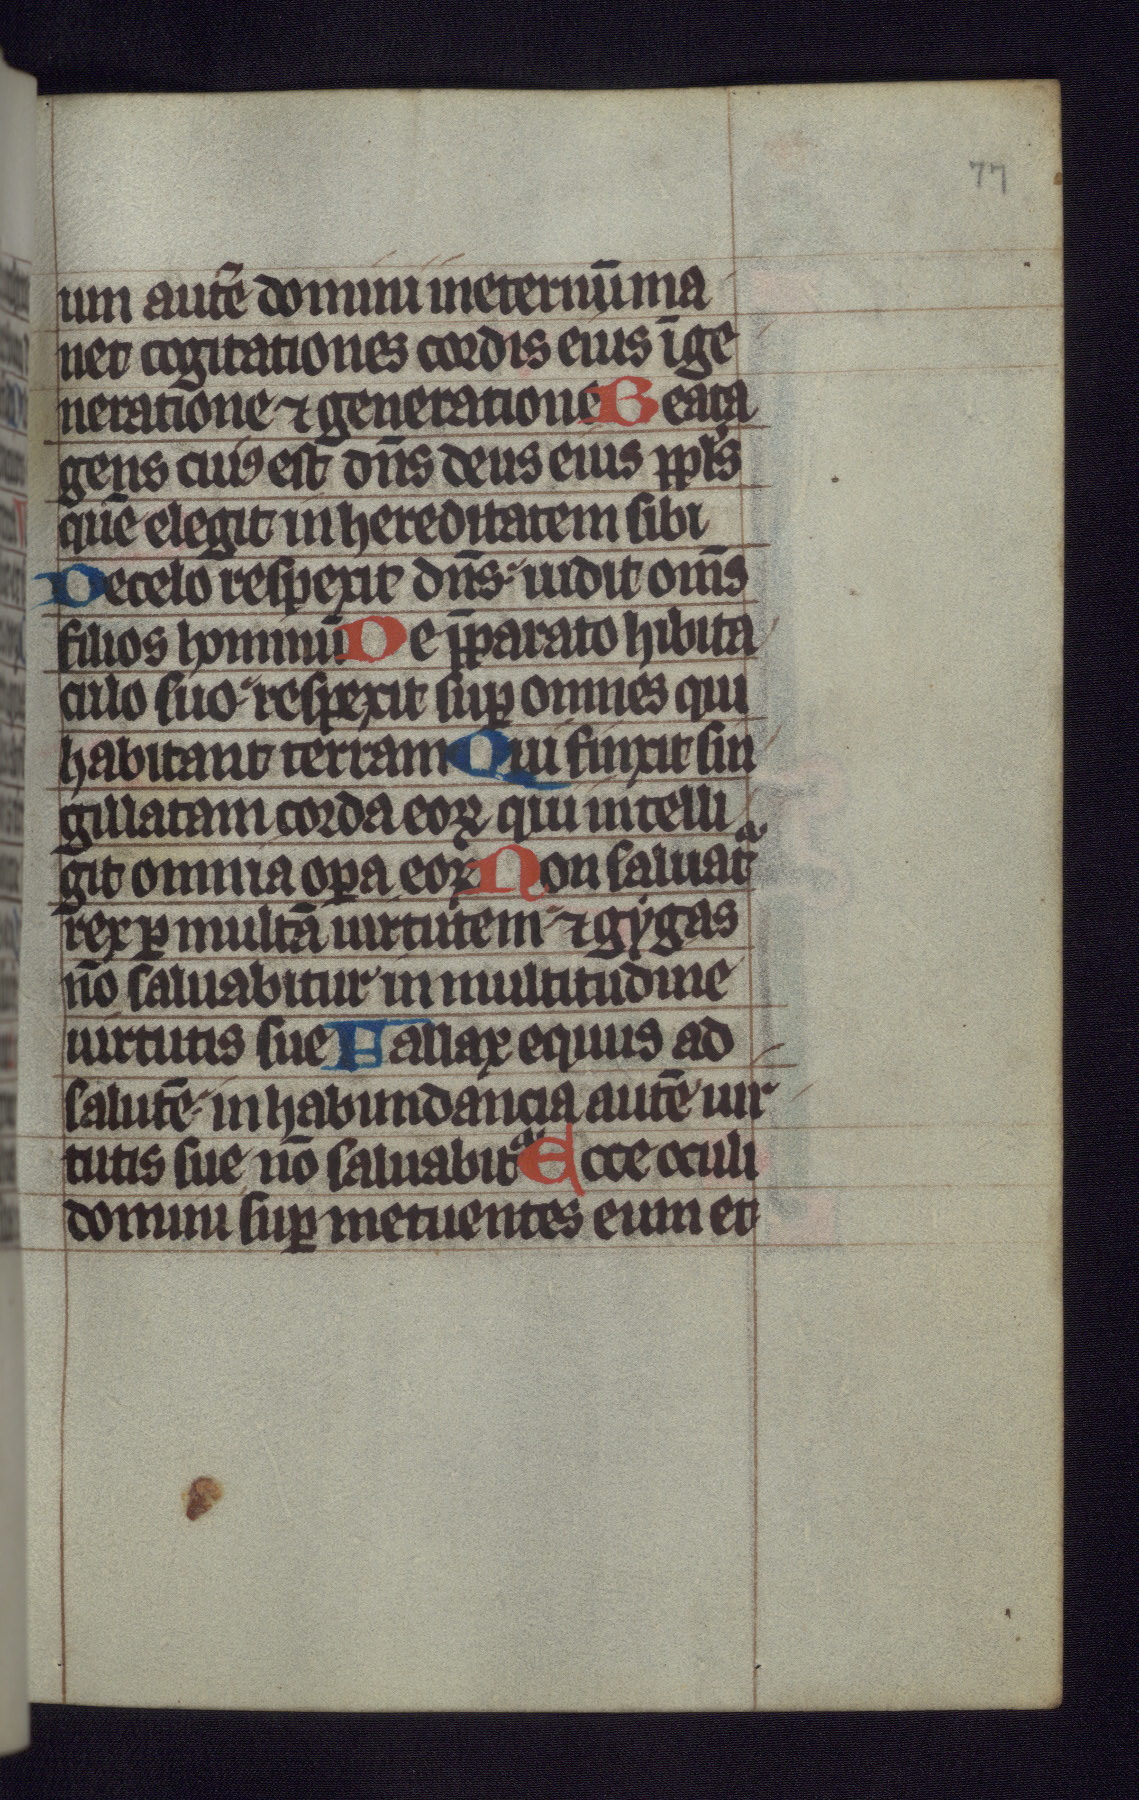 77
um autē domini ineternū ma
net cogitationes cordis eius īge
neratione ⁊ generatione Beata
gens cuiꝯ est dn̄s deus eius ppl̄s
quē elegit in hereditatem sibi
De celo respexit dn̄s uidit om̄s
filios hominū De p̄parato hibita
culo suo respexit suꝑ omnes qui
habitant terram Qui finxit sin
gillatam corda eoꝝ qui intelli
git omnia oꝑa eoꝝ Non saluatᷣ
rex ꝑ multā uirtutem ⁊ gygas
nō saluabitur in multitudine
uirtutis sue Fallax equus ad
salutē in habundancia autē uir
tutis sue nō saluabitᷣ Ecce oculi
domini suꝑ metuentes eum et